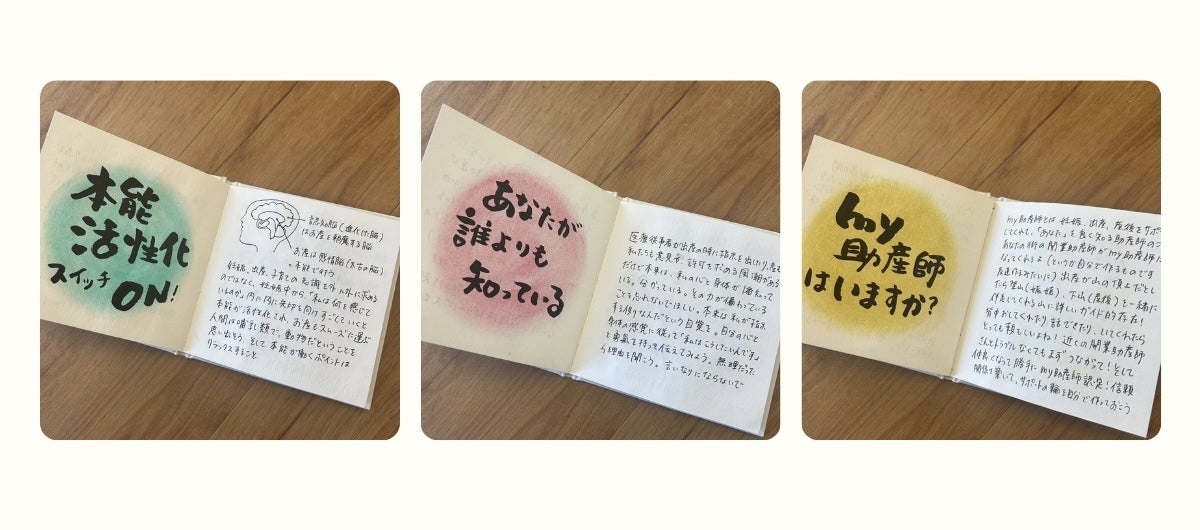 本能
活性化
スイッチ
ON!
認知の脳（進化した脳）
はお産を邪魔する脳
お産は感情脳（太古の脳）
＝本能で行う
妊娠、出産、子育ての知識を外に外に求める
のではなく、妊娠中から、「私は何を感じて
いるのか」内に内に矢印を向けすごしていくと
本能が活性化され、お産もスムーズに運ぶ
人間は哺乳類で、動物だということを
思い出そう。そして本能が働くポイントは
リラックスすること
あなたが
誰よりも
知っている
医療従事者が出産の時に指示を出したり、産む
私たちも意見や、許可を求める風潮がある
だけど本来は、私の心と身体が備わって
いる。分かっている。その力が備わっている
ことを忘れないでほしい。本来は私が指示
する側なんだという自覚を。自分の心と
身体の感覚に従って「私はこうしたいんです」
と勇気を持って伝えてみよう。無理だった
ら理由を聞こう。言いなりにならないで
my
助産師
はいますか?
my助産師とは 妊娠、出産、産後をサポ
してくれて、「あなた」を良く知る助産師のこ
あなたの街の開業助産師がmy助産師に
なってくれるよ（というか自分で作るものです
友達作るみたいに）出産が山の頂上だとし
たら登山（妊娠）、下山（産後）を一緒に
伴走してくれる山に詳しいガイド的存在!
背中おしてくれたり、話できたり、いてくれたら
とっても頼もしいよね! 近くの開業助産師
さんとトラブルなくてもまず"つながって!そして
仲良くなって勝手にmy助産師認定!信頼
関係を築いて、サポートの輪を自分で作っておこう